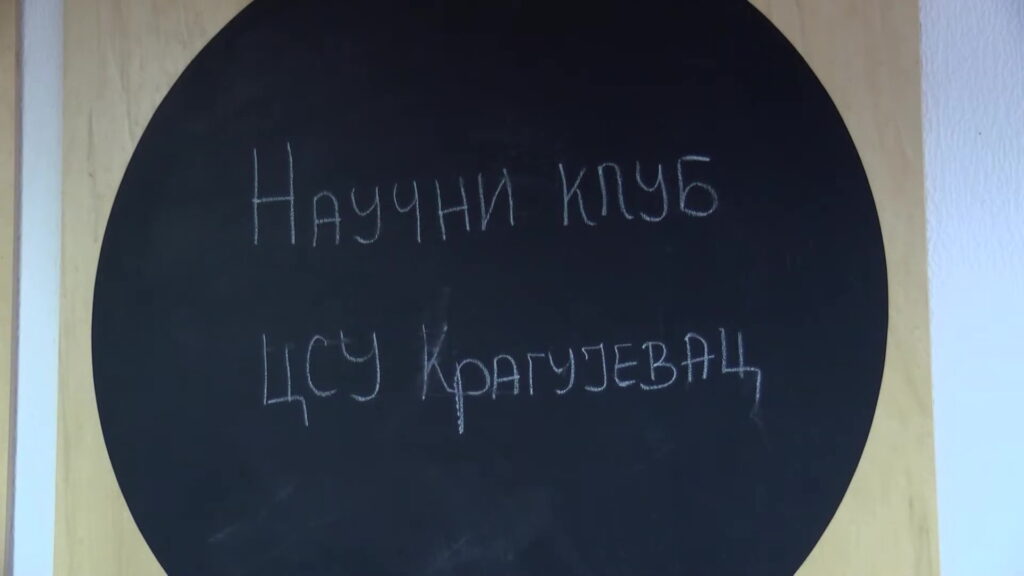 Научни клуб
ЦСУ Крагујевац